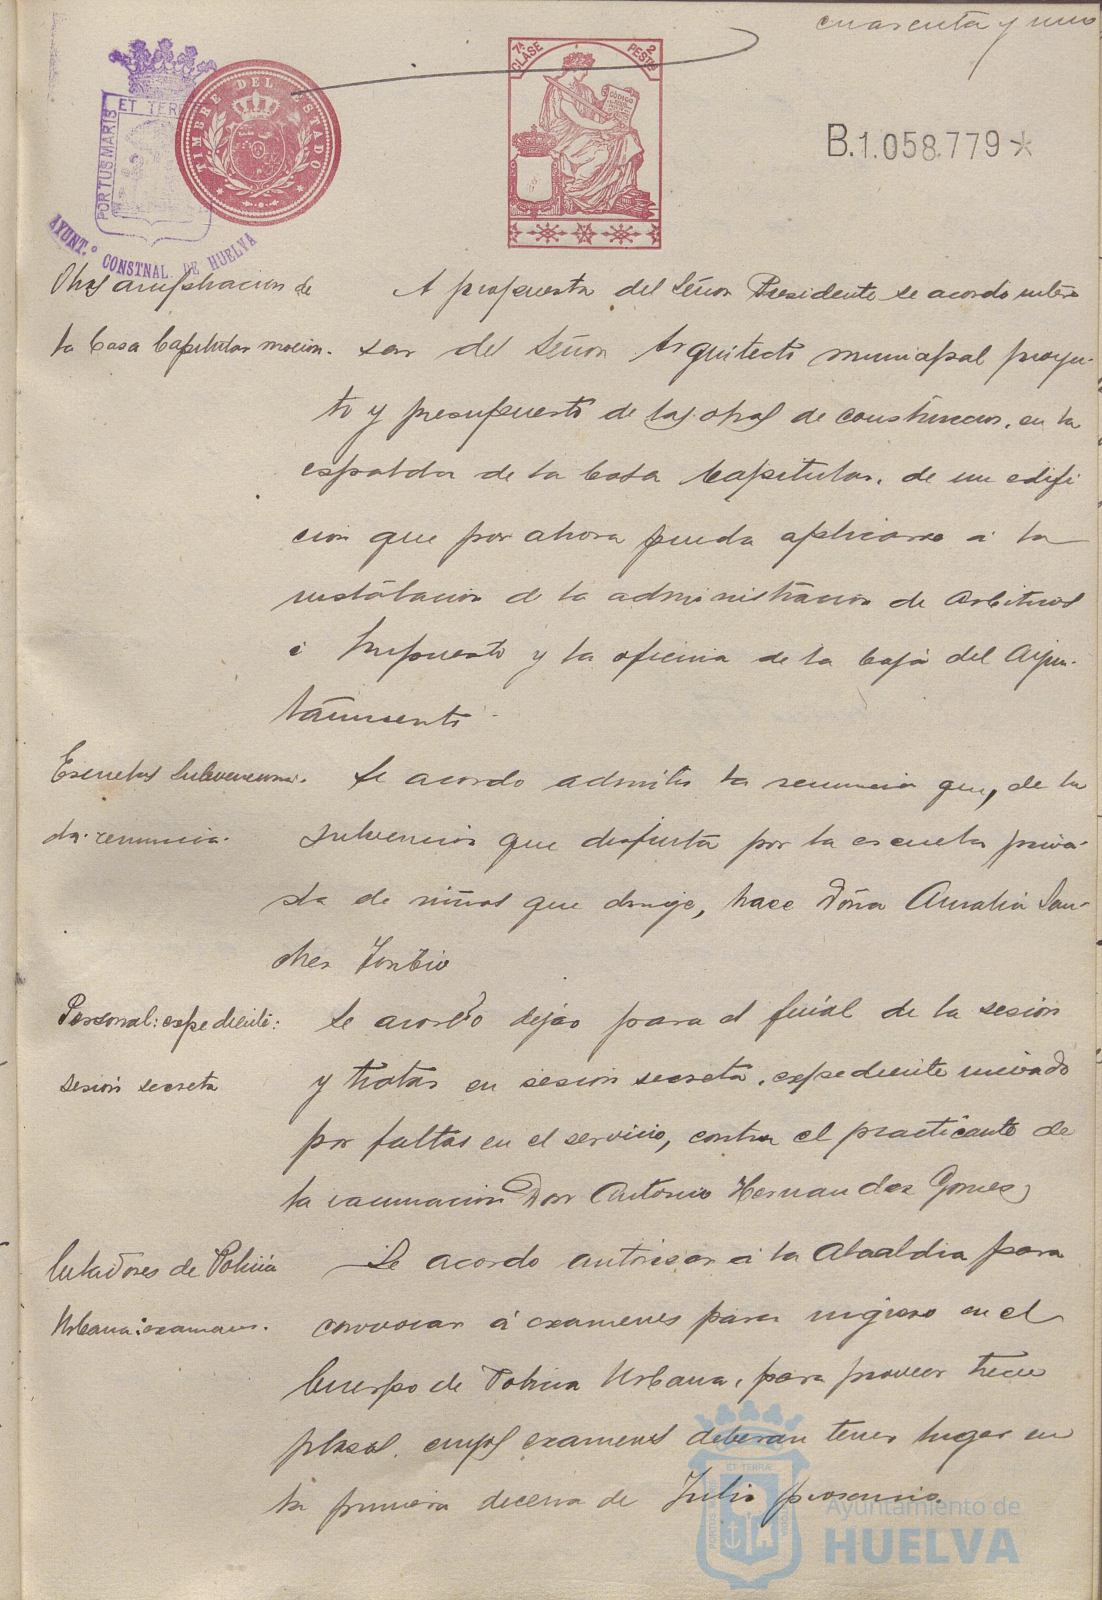 cuarenta y uno
7ª CLASE
2 PESTS
CÓDIGO
TIMBRE DEL ESTADO
PORTUS MARIS ET TERR
AYUNT.º CONSTNAL. DE HUELVA
B.1.058.779
Obras ampliacion de
la Casa Capitular mocion.
A propuesta del Señor Presidente se acordo intere
sar del Señor Arquitecto municipal proyec-
to y presupuesto de las obras de construccion, en la
espalda de la Casa Capitular, de un edifi
cion que por ahora pueda aplicarse á la
instalacion de la administracion de Arbitrios
é Impuesto y la oficina de la Caja del Ayun-
tamiento.
Escuelas subvenciona-
da: renuncia.
Se acordo admitir la renuncia que, de la
subvencion que disfruta por la escuela priva-
da de niñas que dirige, hace Doña Amalia San-
chez Toribio
Personal: expediente:
sesion secreta
Se acordo dejar para el final de la sesion
y tratar en sesion secreta, expediente incoado
por faltas en el servicio, contra el practicante de
la vacunacion Don Antonio Hernandez Gomez
Celadores de Policia
Urbana: examenes.
Se acordo autorizar á la Alcaldia para
convocar á examenes para ingreso en el
Cuerpo de Policia Urbana, para proveer trece
plazas, cuyos examenes deberán tener lugar en
la primera decena de Julio proximo.
Ayuntamiento de
HUELVA